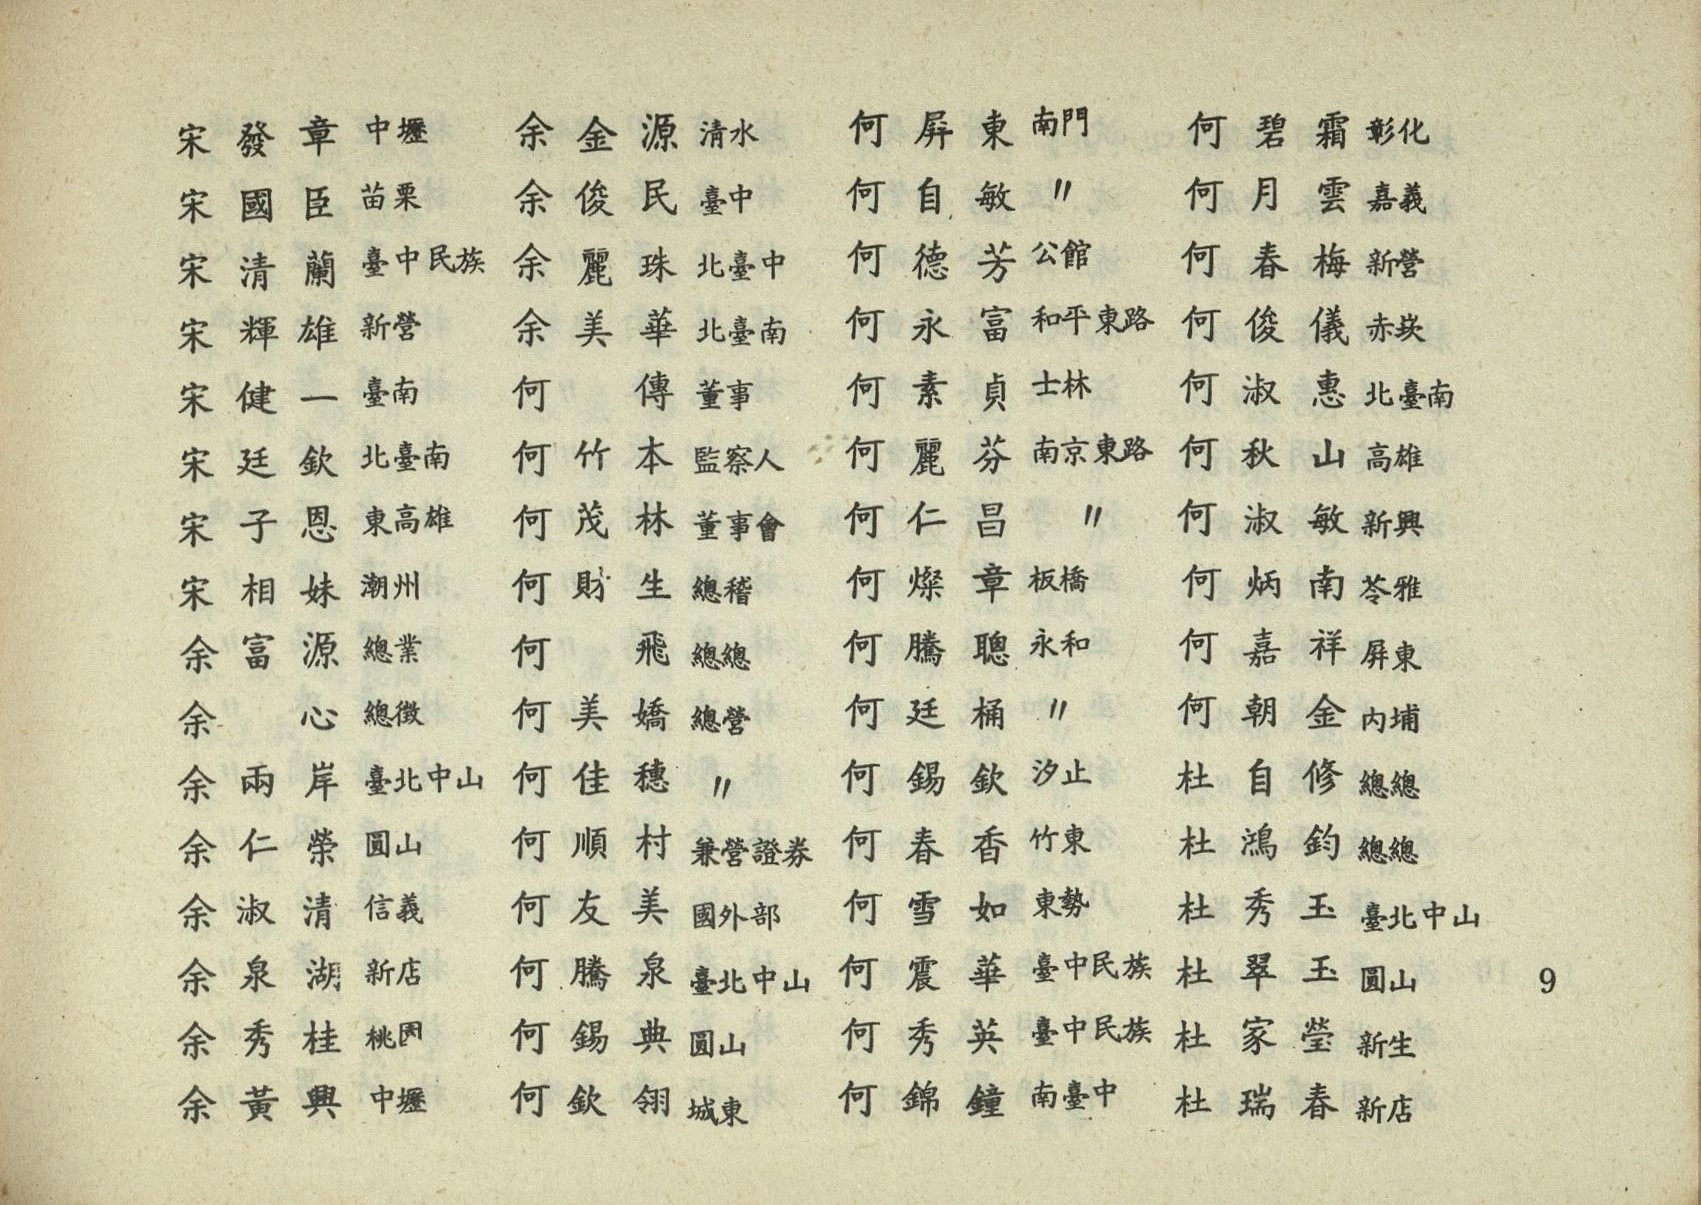 宋發章 中壢
宋國臣 苗栗
宋清蘭 臺中民族
宋輝雄 新營
宋健一 臺南
宋廷欽 北臺南
宋子恩 東高雄
宋相妹 潮州
余富源 總業
余 心 總徵
余兩岸 臺北中山
余仁榮 圓山
余淑清 信義
余泉湖 新店
余秀桂 桃園
余黃興 中壢
余金源 清水
余俊民 臺中
余麗珠 北臺中
余美華 北臺南
何 傳 董事
何竹本 監察人
何茂林 董事會
何財生 總稽
何 飛 總總
何美嬌 總營
何佳穗 〃
何順村 兼營證券
何友美 國外部
何騰泉 臺北中山
何錫典 圓山
何欽翎 城東
何屏東 南門
何自敏 〃
何德芳 公館
何永富 和平東路
何素貞 士林
何麗芬 南京東路
何仁昌 〃
何燦章 板橋
何騰聰 永和
何廷桶 〃
何錫欽 汐止
何春香 竹東
何雪如 東勢
何震華 臺中民族
何秀英 臺中民族
何錦鐘 南臺中
何碧霜 彰化
何月雲 嘉義
何春梅 新營
何俊儀 赤崁
何淑惠 北臺南
何秋山 高雄
何淑敏 新興
何炳南 苓雅
何嘉祥 屏東
何朝金 內埔
杜自修 總總
杜鴻鈞 總總
杜秀玉 臺北中山
杜翠玉 圓山
杜家瑩 新生
杜瑞春 新店
9